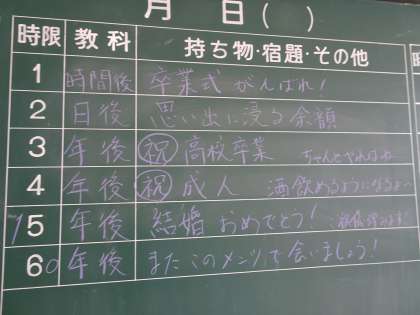 月 日( )
時限 教科 持ち物・宿題・その他
1 時間後 卒業式 がんばれ!
2 日後 思い出に浸る余韻
3 年後 祝 高校卒業
4 年後 祝 成人 酒飲めるようになるよ
15 年後 結婚 おめでとう!
60 年後 またこのメンツで会いましょう!
時